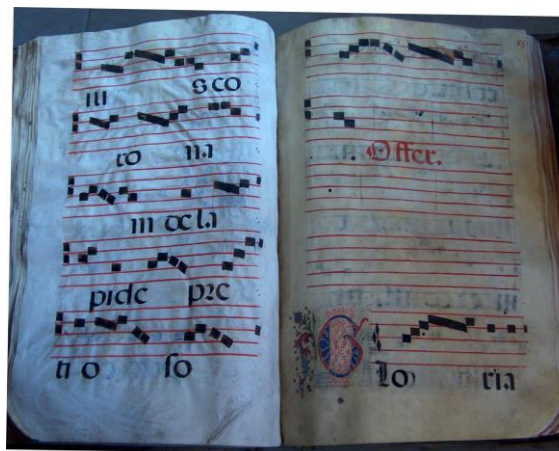 iu s co
ro na
m de la
pide pre
ti o so
Offer.
Glo ria